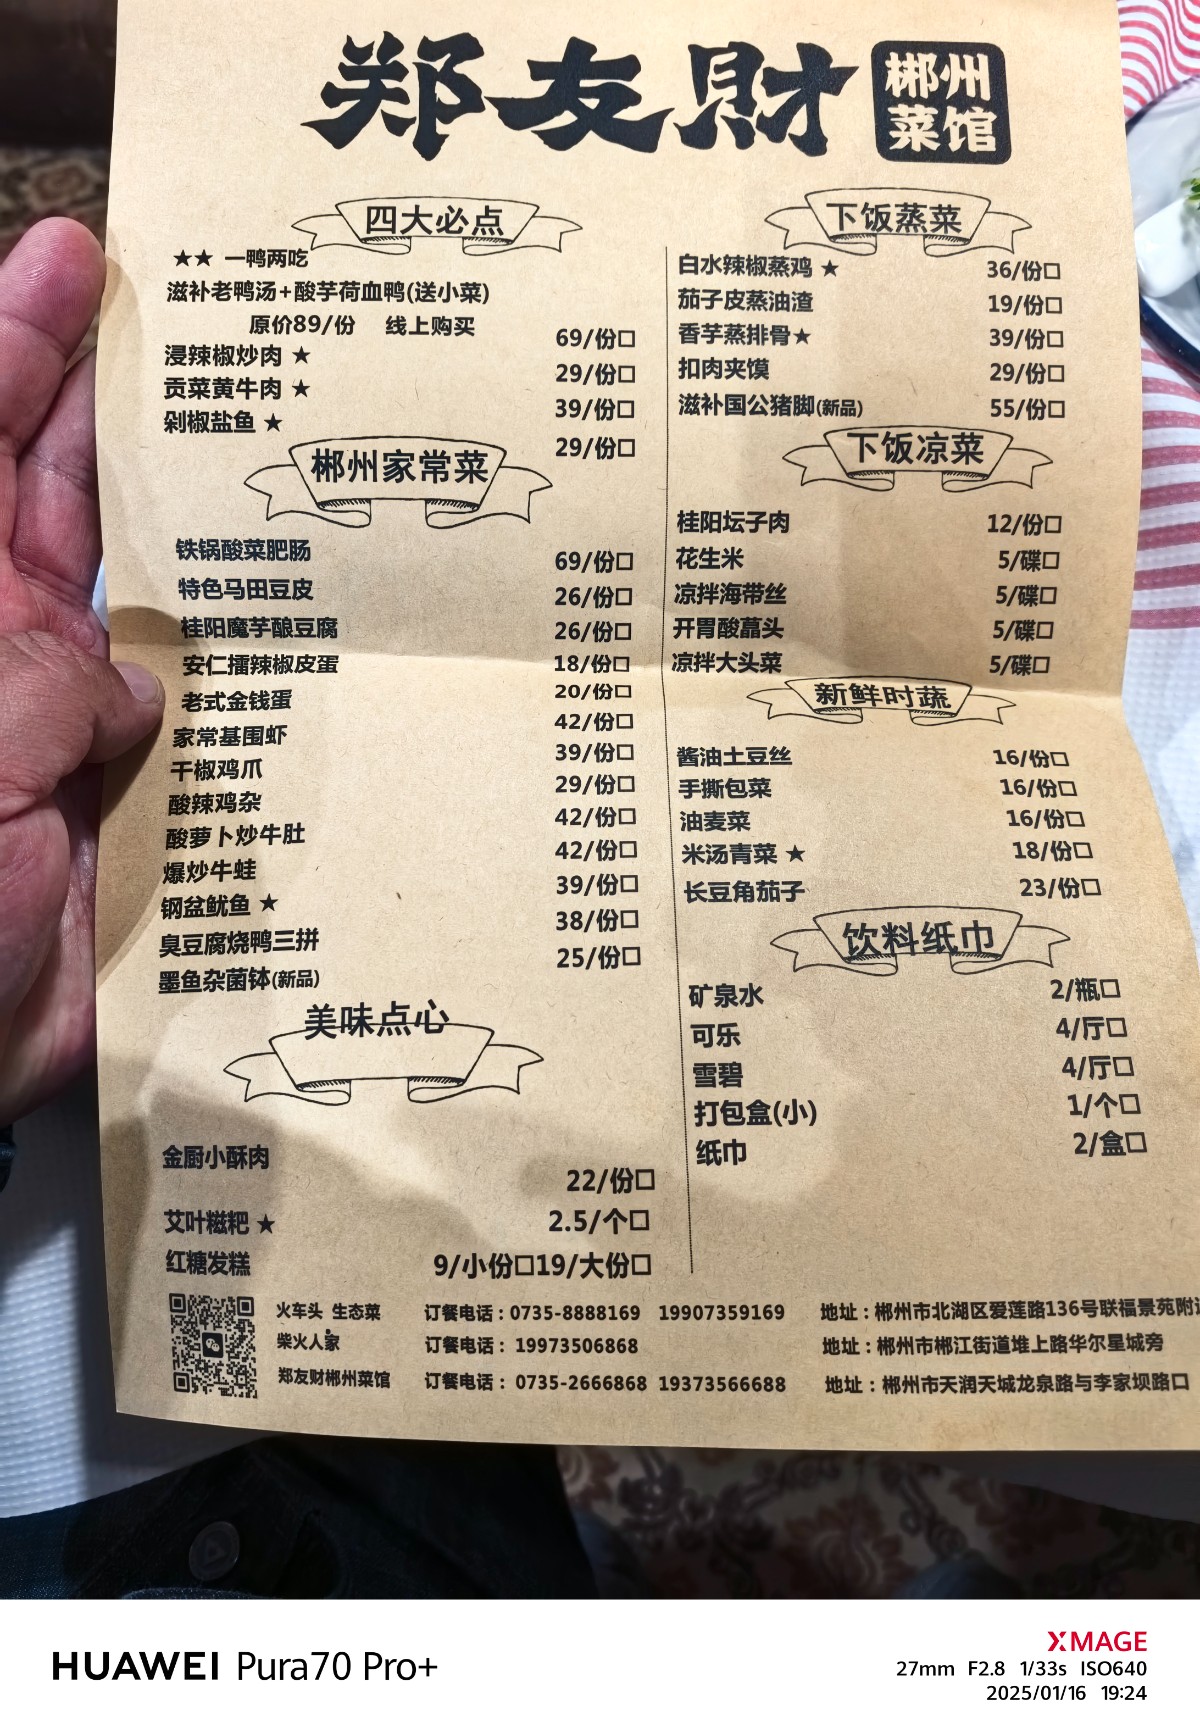 郑友財
郴州
菜馆
四大必点
★★ 一鸭两吃
滋补老鸭汤+酸芋荷血鸭(送小菜)
原价89/份 线上购买 69/份口
浸辣椒炒肉 ★ 29/份口
贡菜黄牛肉 ★ 39/份口
剁椒盐鱼 ★ 29/份口
郴州家常菜
铁锅酸菜肥肠 69/份口
特色马田豆皮 26/份口
桂阳魔芋酿豆腐 26/份口
安仁擂辣椒皮蛋 18/份口
老式金钱蛋 20/份口
家常基围虾 42/份口
干椒鸡爪 39/份口
酸辣鸡杂 29/份口
酸萝卜炒牛肚 42/份口
爆炒牛蛙 42/份口
钢盆鱿鱼 ★ 39/份口
臭豆腐烧鸭三拼 38/份口
墨鱼杂菌钵(新品) 25/份口
美味点心
金厨小酥肉 22/份口
艾叶糍粑 ★ 2.5/个口
红糖发糕 9/小份口19/大份口
下饭蒸菜
白水辣椒蒸鸡 ★ 36/份口
茄子皮蒸油渣 19/份口
香芋蒸排骨★ 39/份口
扣肉夹馍 29/份口
滋补国公猪脚(新品) 55/份口
下饭凉菜
桂阳坛子肉 12/份口
花生米 5/碟口
凉拌海带丝 5/碟口
开胃酸藠头 5/碟口
凉拌大头菜 5/碟口
新鲜时蔬
酱油土豆丝 16/份口
手撕包菜 16/份口
油麦菜 16/份口
米汤青菜 ★ 18/份口
长豆角茄子 23/份口
饮料纸巾
矿泉水 2/瓶口
可乐 4/厅口
雪碧 4/厅口
打包盒(小) 1/个口
纸巾 2/盒口
火车头 生态菜 订餐电话：0735-8888169 19907359169 地址：郴州市北湖区爱莲路136号联福景苑附近
柴火人家 订餐电话：19973506868 地址：郴州市郴江街道堆上路华尔星城旁
郑友财郴州菜馆 订餐电话：0735-2666868 19373566688 地址：郴州市天润天城龙泉路与李家坝路口
HUAWEI Pura70 Pro+
XMAGE
27mm F2.8 1/33s ISO640
2025/01/16 19:24